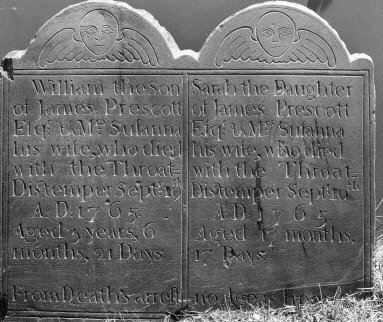 William the Son
of James Prescott
Esqr. & Mrs. Susanna
his wife, who died
with the Throat=
Distemper Septr. 19th
A.D. 1765.
Aged 3 years. 6
months, 21 Days.
Sarah the Daughter
of James Prescott
Esqr. & Mrs. Susanna
his wife, who died
with the Throat=
Distemper Septr. 10th
A.D. 1765.
Aged 17 months,
17 Days.
From Death's arrest no age is free